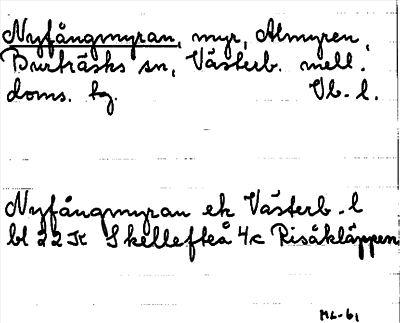 Nyfångmyran, myr, Almyren,
Burträsks sn, Västerb. mell.
doms. tg. Vb. l.
Nyfångmyran ek Västerb. l
bl 22 K Skellefteå 4c Risåkläppen
ML-61